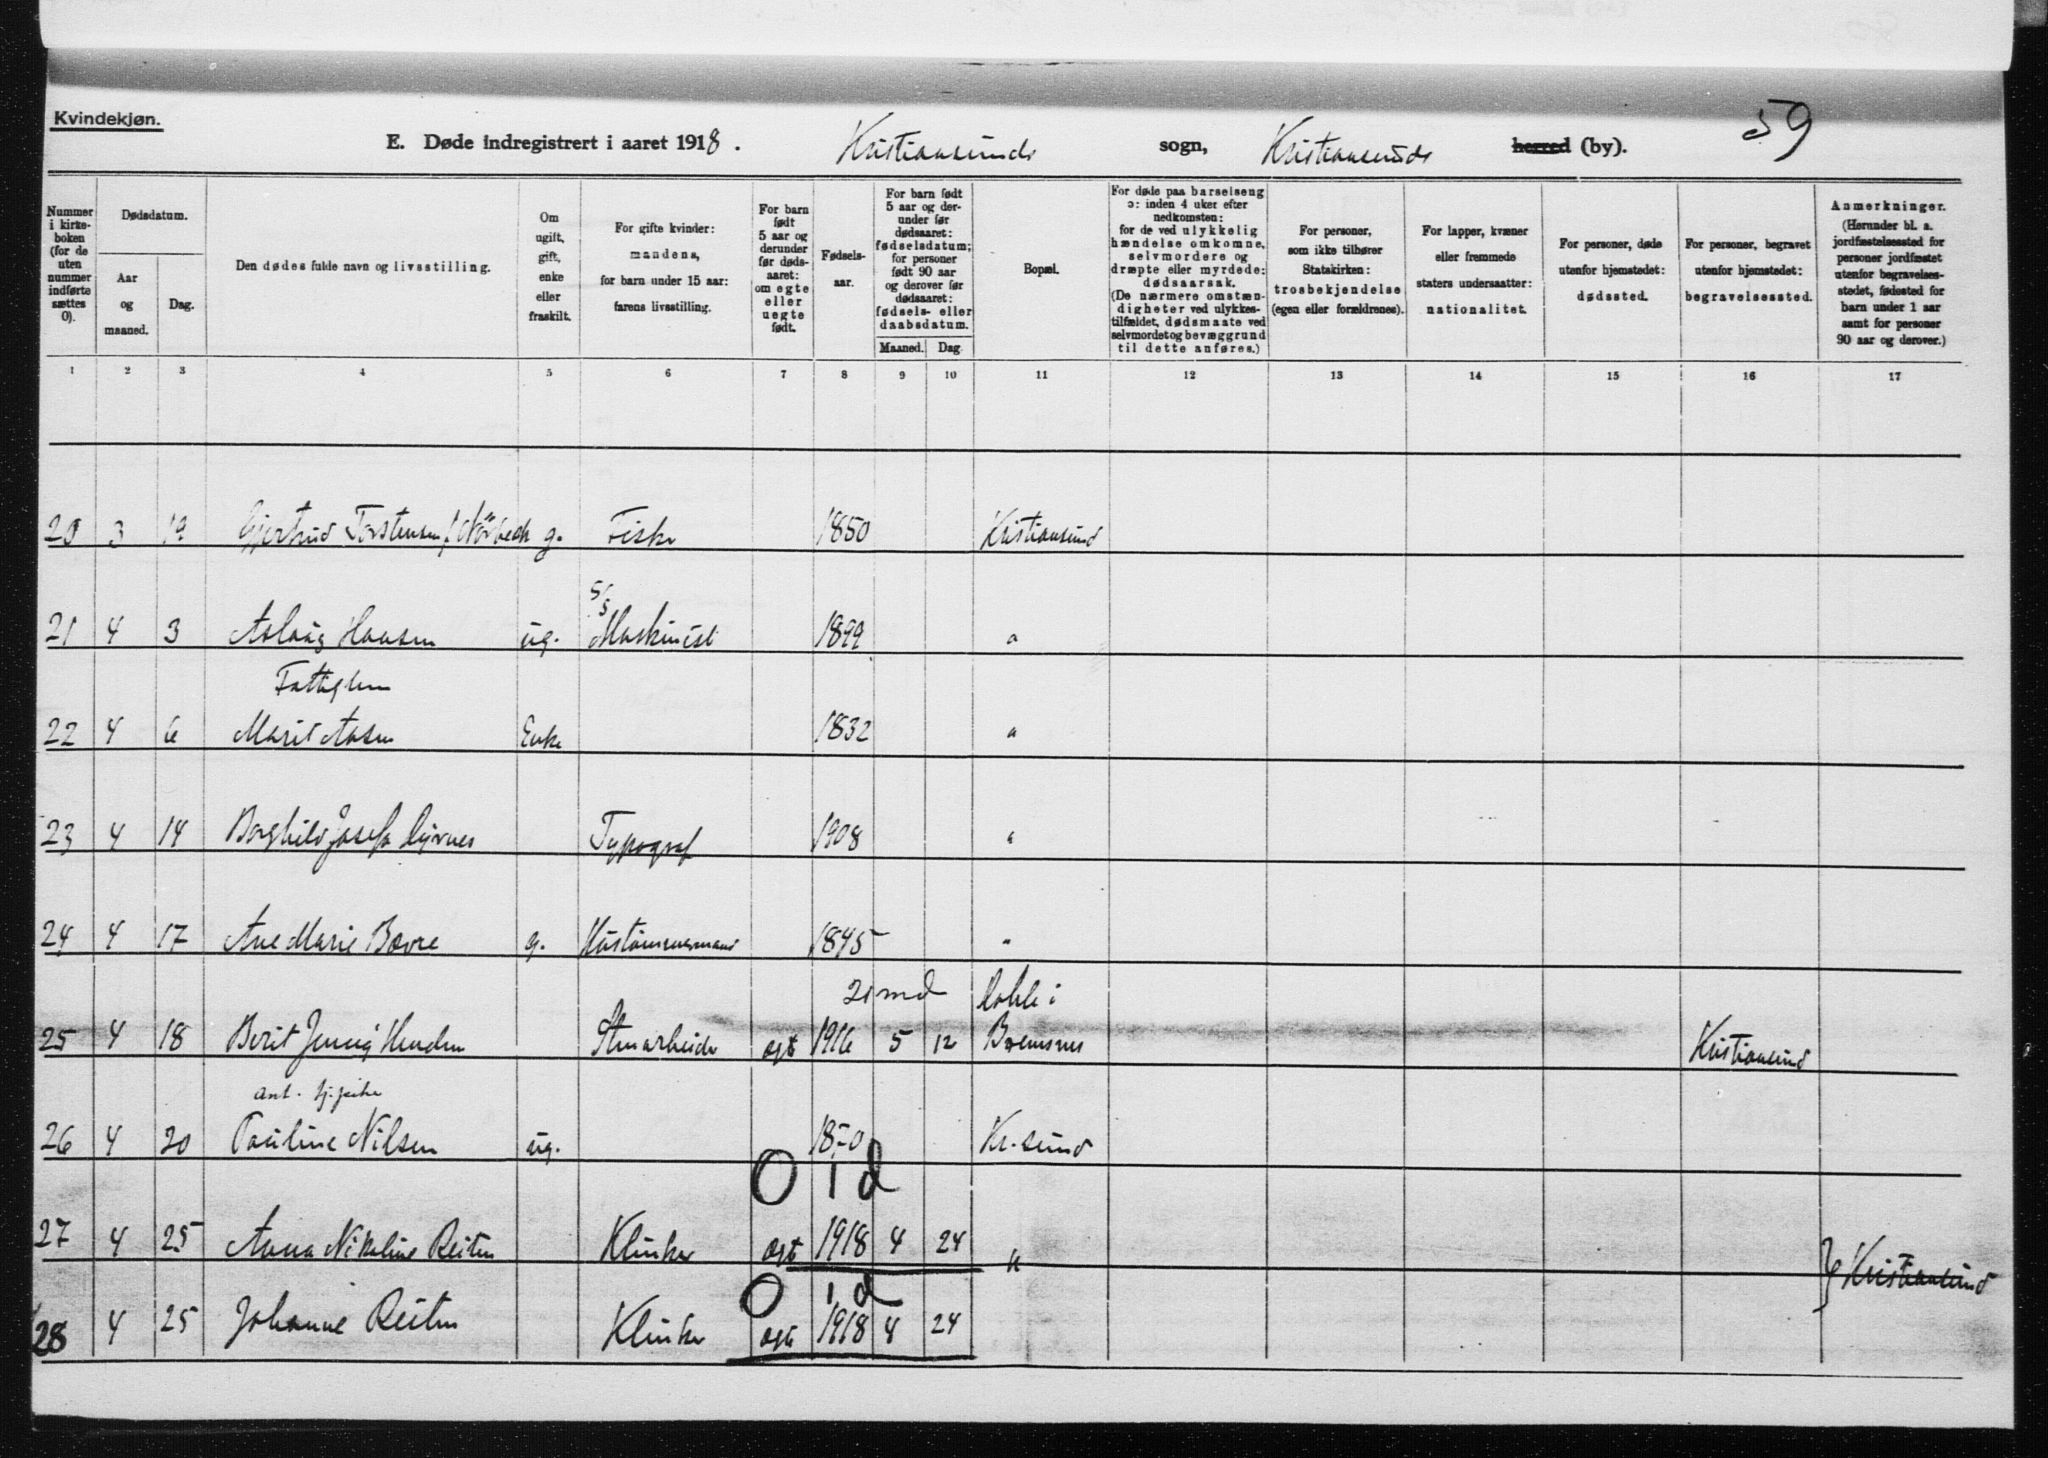 59
Kvindekjøn.
E. Døde indregistrert i aaret 1918. Kristiansunds sogn, Kristiansunds herred (by).
Nummer i kirkeboken (for de uten nummer indførte sættes 0).
Dødsdatum.
Aar og maaned.
Dag.
Den dødes fulde navn og livsstilling.
Om ugift, gift, enke eller fraskilt.
For gifte kvinder: mandens, for barn under 15 aar: farens livsstilling.
For barn født 5 aar og derunder før dødsaaret: om egte eller uegte født.
Fødselsaar.
For barn født 5 aar og derunder før dødsaaret: fødselsdatum; for personer født 90 aar og derover før dødsaaret: fødsels- eller daabsdatum.
Maaned. Dag.
Bopæl.
For døde paa barselseng ɔ: inden 4 uker efter nedkomsten: for de ved ulykkelig hændelse omkomne, selvmordere og dræpte eller myrdede: dødsaarsak. (De nærmere omstændigheter ved ulykkestilfældet, dødsmaate ved selvmordet og bevæggrund til dette anføres.)
For personer, som ikke tilhører Statskirken: trosbekjendelse (egen eller forældrenes).
For lapper, kvæner eller fremmede staters undersaatter: nationalitet.
For personer, døde utenfor hjemstedet: dødssted.
For personer, begravet utenfor hjemstedet: begravelsessted.
Anmerkninger. (Herunder bl. a. jordfæstelsessted for personer jordfæstet utenfor begravelsesstedet, fødested for barn under 1 aar samt for personer 90 aar og derover.)
1 2 3 4 5 6 7 8 9 10 11 12 13 14 15 16 17
20 3 19 Gjertrud Torstensen g. Fisker 1850 Kristiansund
S/S
21 4 3 Aslaug Hansen ug. Maskinist 1899 "
Fattiglem
22 4 6 Marit Aasen Enke 1832 "
23 4 14 Borghild Josefa Typograf 1908 "
24 4 17 Ane Marie Bævre g. Hustømmermand 1845 "
21 md i
25 4 18 Berit Jenny Henden Stenarbeider egte 1916 5 12 Bremsnes Kristiansund
26 4 20 Pauline Nilsen ug. 1870 Kr.sund
0 1 d
27 4 25 Anna Nikoline Reiten Klinker egte 1918 4 24 " } Kristiansund
0 1 d
28 4 25 Johanne Reiten Klinker egte 1918 4 24